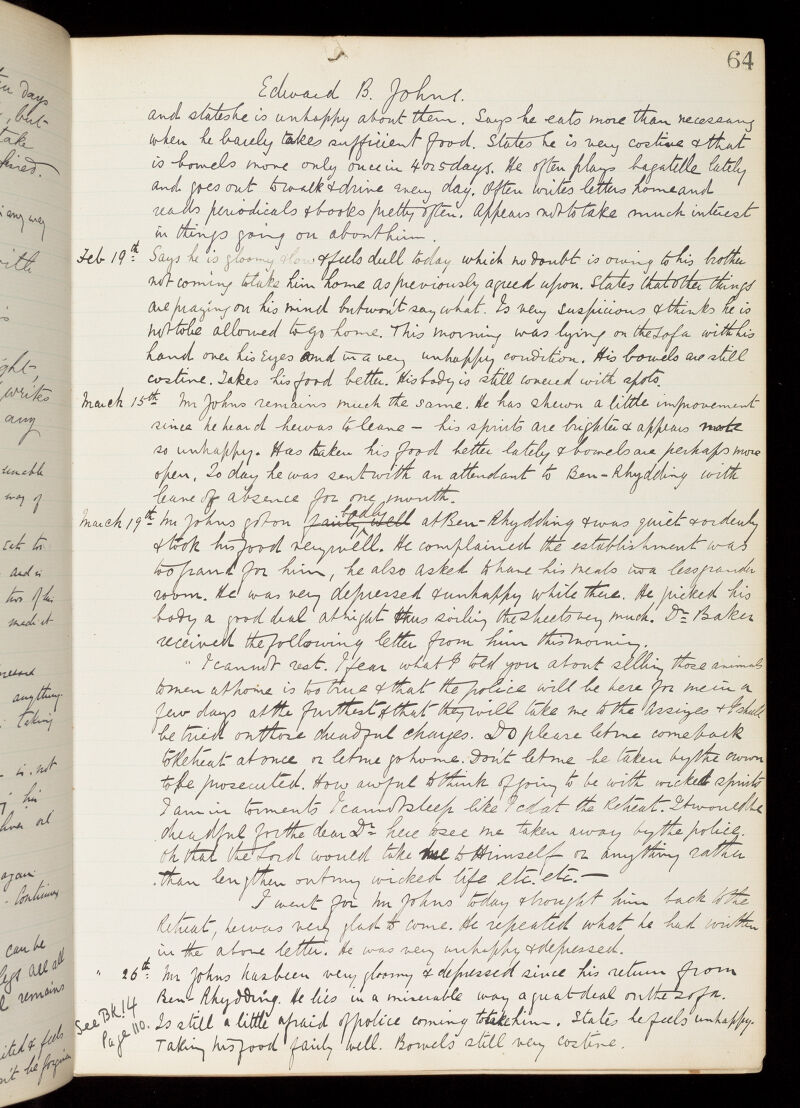 64
Edward B. Johns.
and states he is unhappy about them. Says he eats more than necessary
when he barely takes sufficient food. States he is very costive & that
is bowels move only once in 4 or 5 days. He often plays bagatelle lately
and goes out to walk & drive every day. Often writes letters home and
reads periodicals & books pretty often. Appears not to take much interest
in things going on about him.
Feb 19th. Says he is gloomy & low & feels dull today which no doubt is owing to his brother
not coming to take him home as previously agreed upon. States that other things
are praying on his mind but won't say what. Is very suspicious & thinks he is
not to be allowed to go home. This morning was lying on the sofa with his
hand over his eyes and in a very unhappy condition. His bowels are still
costive. Takes his food better. His body is still covered with spots.
March 15th Mr Johns remains much the same. He has shewn a little improvement
since he heard he was to leave – his spirits are brighter & appears
so unhappy. Has taken his food better lately & bowels are perhaps more
open. To day he was sent with an attendant to Ben-Rhydding with
leave of absence for one month.
March 19th. Mr Johns got on fairly well badly at Ben-Rhydding & was quiet & orderly
& took his food very well. He complained the establishment was
too grand for him, he also asked to have his meals in a less grander
room. He was very depressed & unhappy while there. He picked his
body a good deal at night thus soiling the sheets very much. Dr Baker
received the following letter from him this morning.
"I cannot rest. I fear what I told you about selling those animals
to men at home is too true & that the police will be here for me in a
few days at the furthest & that they will take me to the Assizes & I shall
be tried on those dreadful charges. Do please let me come back
to Retreat at once or let me go home. Don't let me be taken by the crown
to be prosecuted. How awful to think of going to be with wicked spirits
I am in torments I cannot sleep like I did at the Retreat. It would be
dreadful for the dear Dr here to see me taken away by the police.
Oh that the Lord would take me to Himself or anything rather
than lengthen out my wicked life etc. etc. —
I went for Mr Johns today & brought him back to the
Retreat, he was very glad to come. He repeated what he had written
in the above letter. He was very unhappy & depressed.
" 26th. Mr Johns has been very gloomy & depressed since his return from
Ben-Rhydding. He lies in a miserable way a great deal on the sofa.
See Bk. 14
Page 110.
Is still a little afraid of police coming to take him. States he feels unhappy.
Taking his food fairly well. Bowels still very costive.